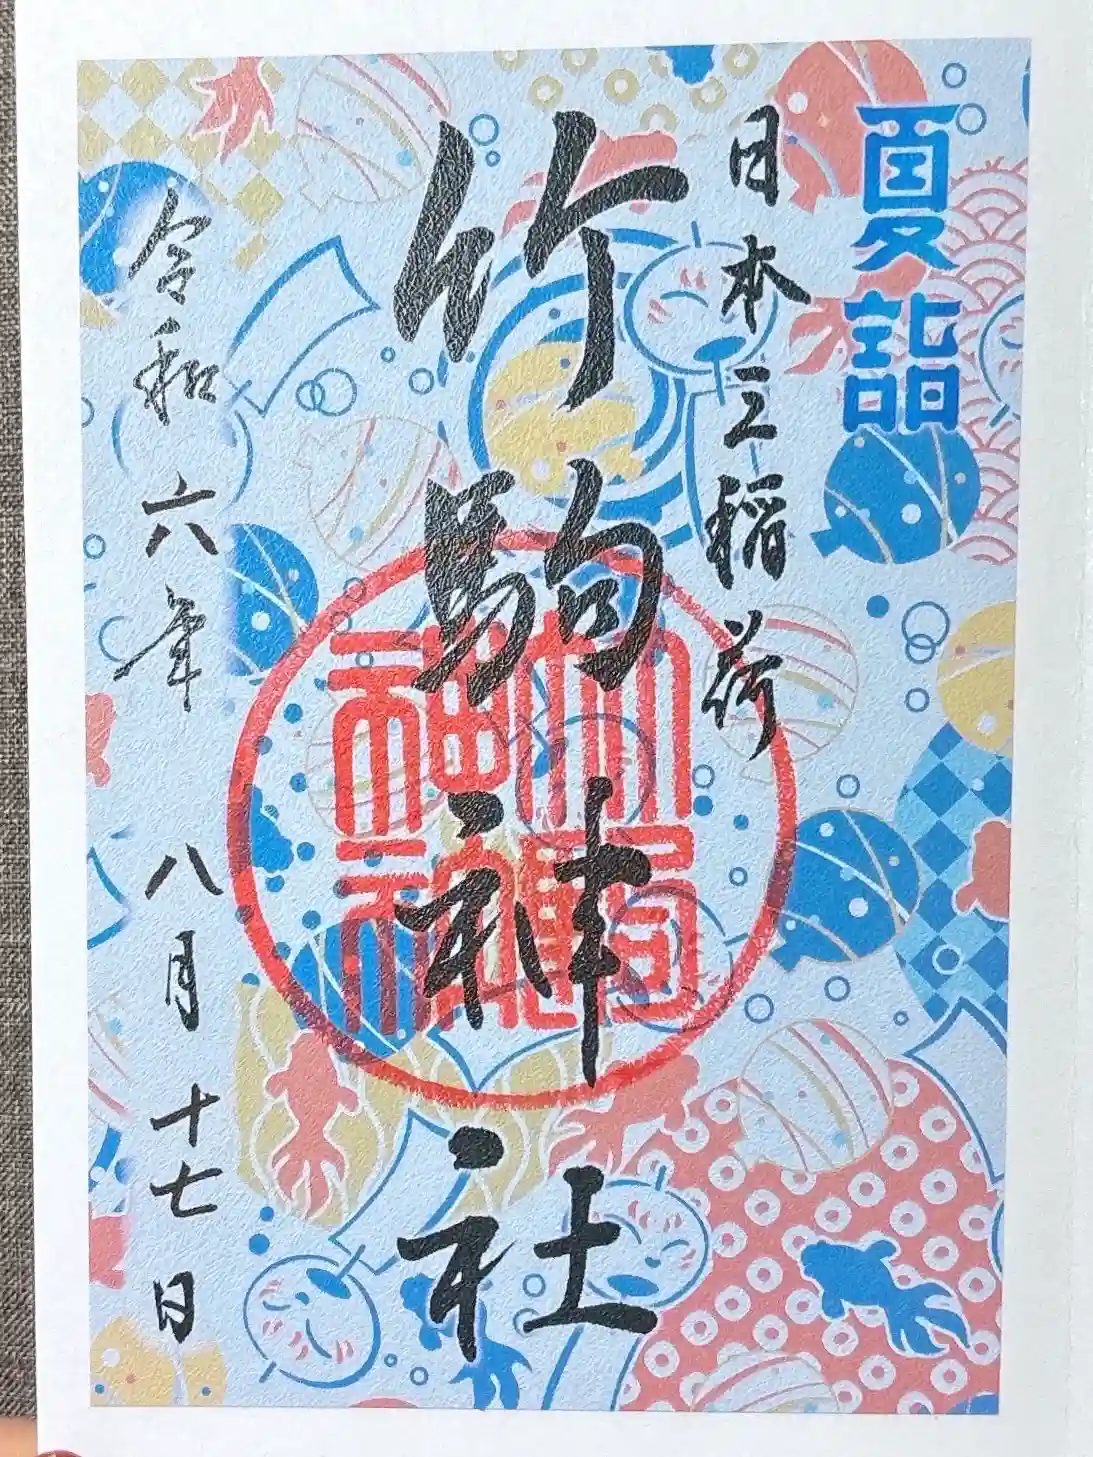 夏詣
日本三稲荷
竹駒神社
竹駒神社
令和六年八月十七日